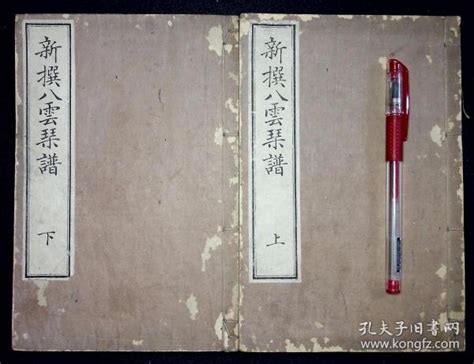 新撰八雲琴譜
上
新撰八雲琴譜
下
孔夫子旧书网
www.kongfz.com